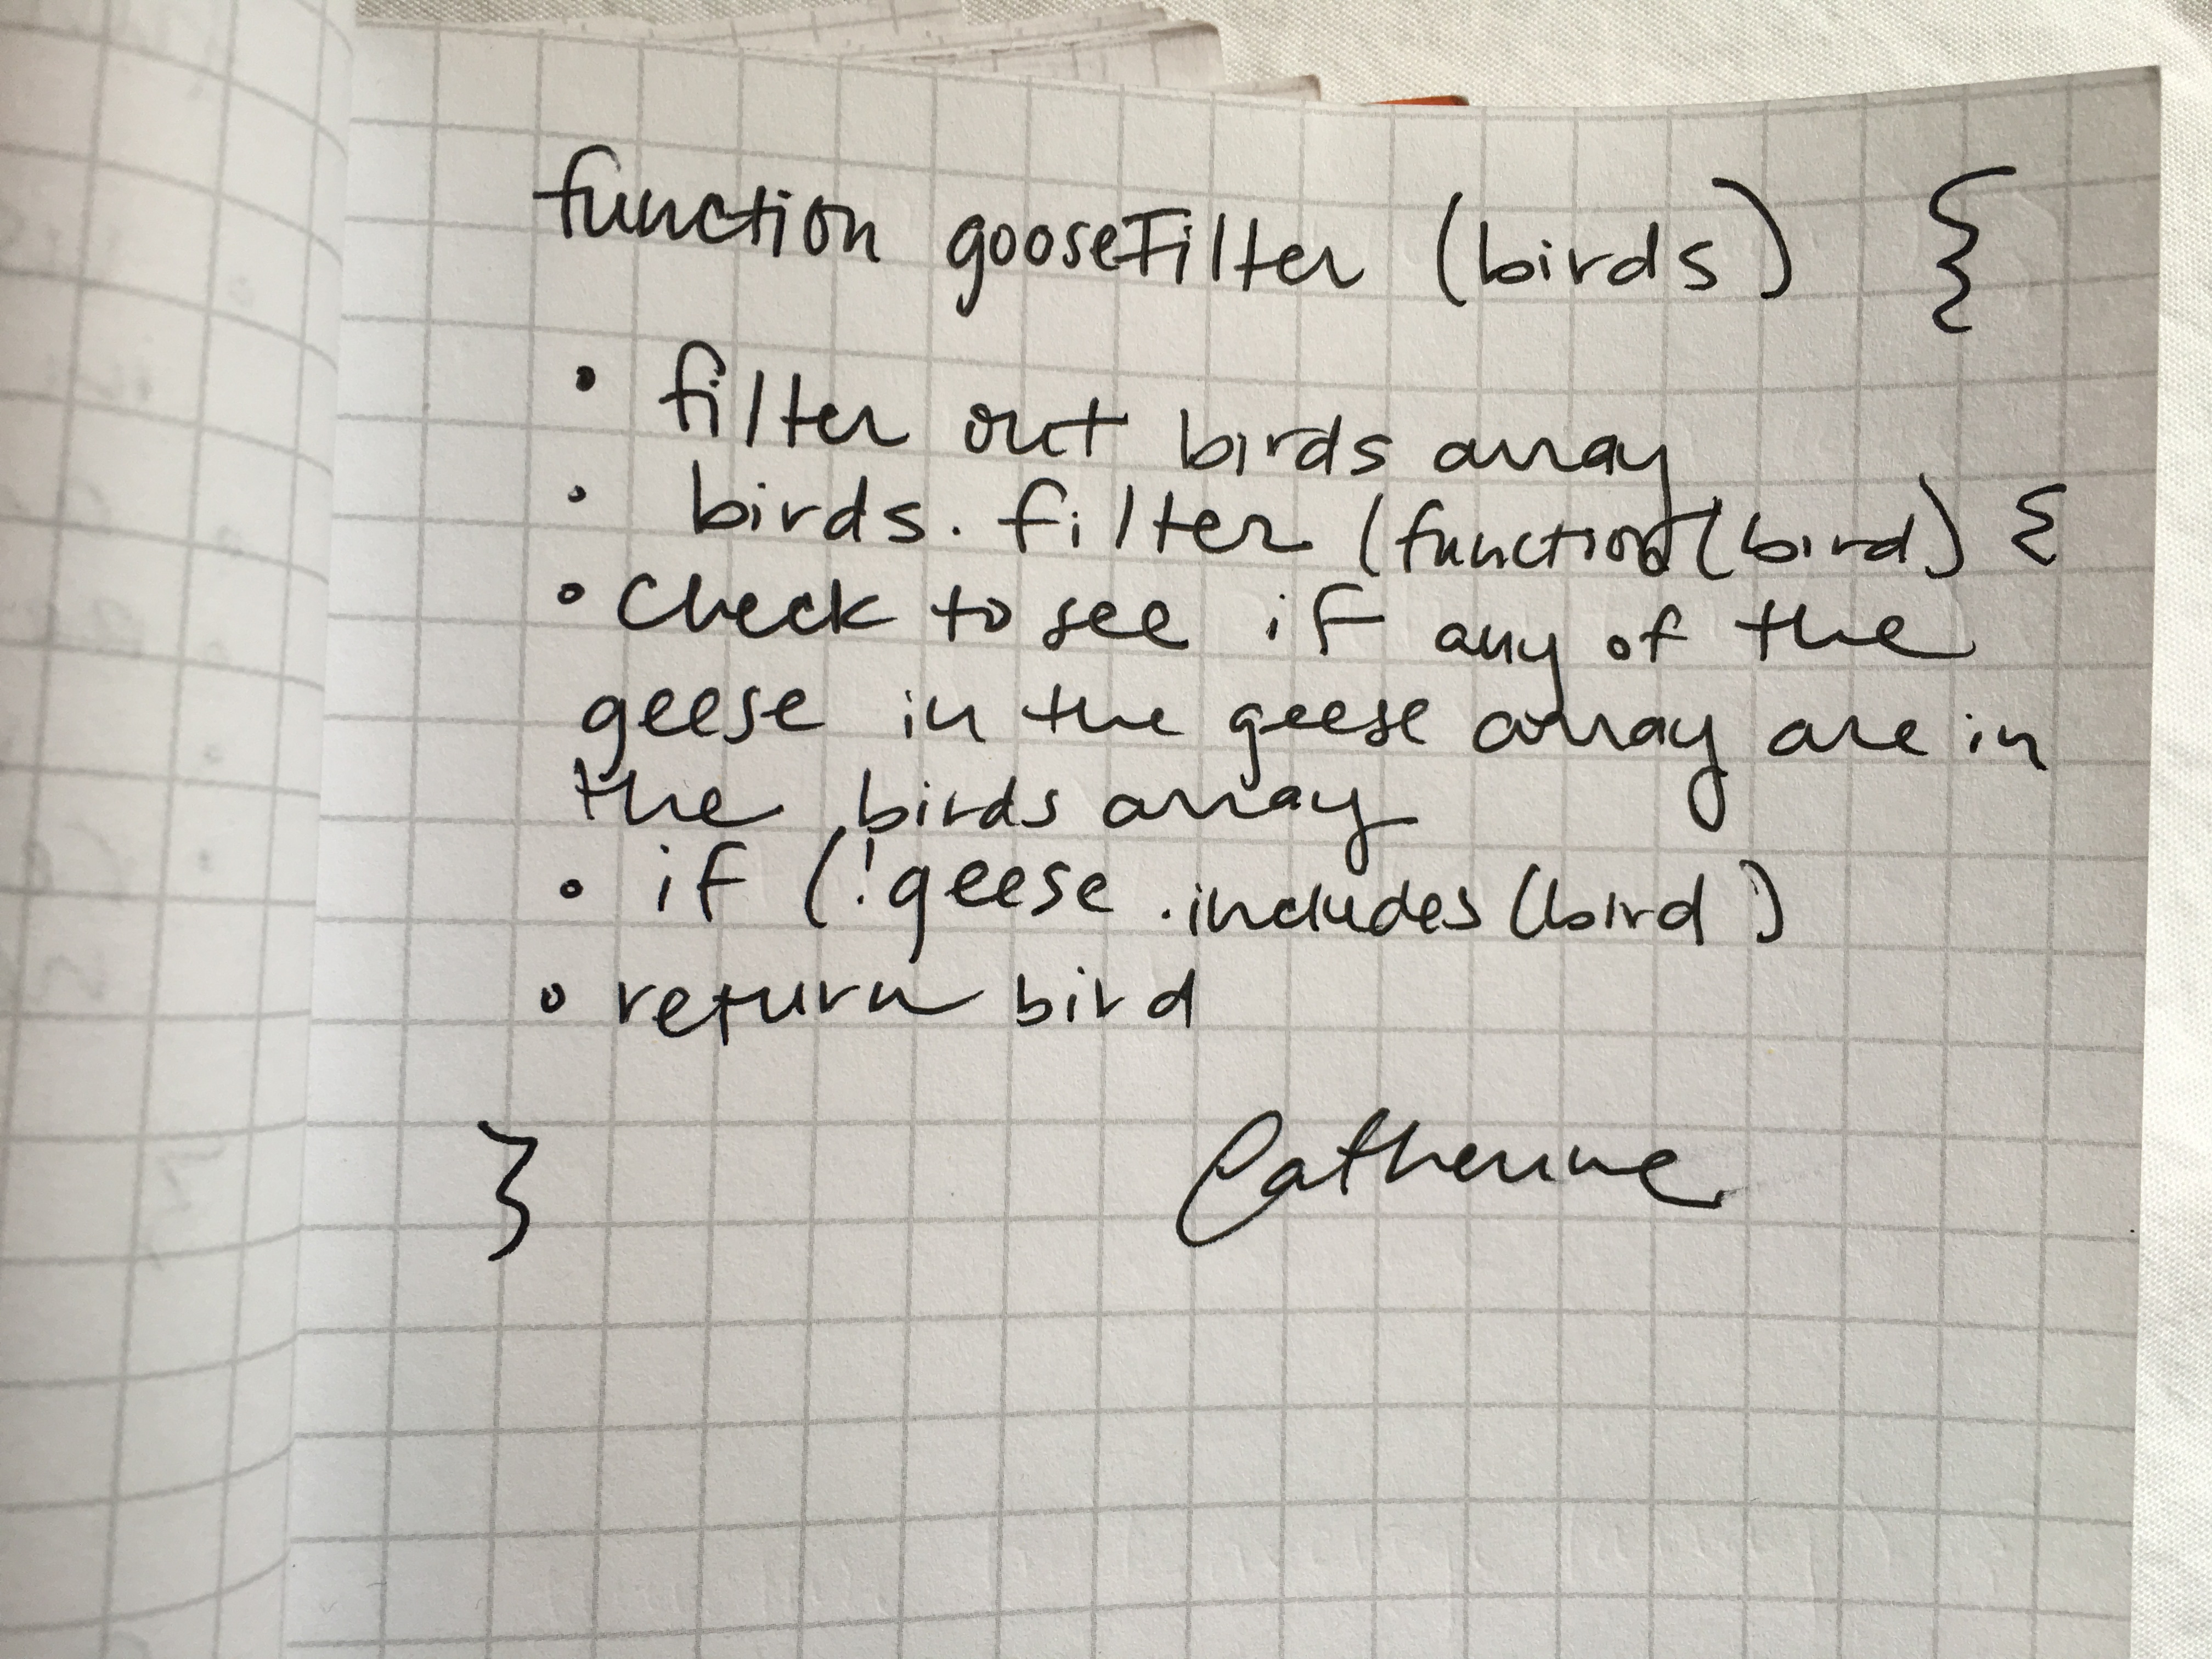 function gooseFilter (birds) {
• filter out birds array
• birds.filter(function(bird) {
• Check to see if any of the
geese in the geese array are in
the birds array
• if (!geese.includes(bird)
• return bird
}
Catherine